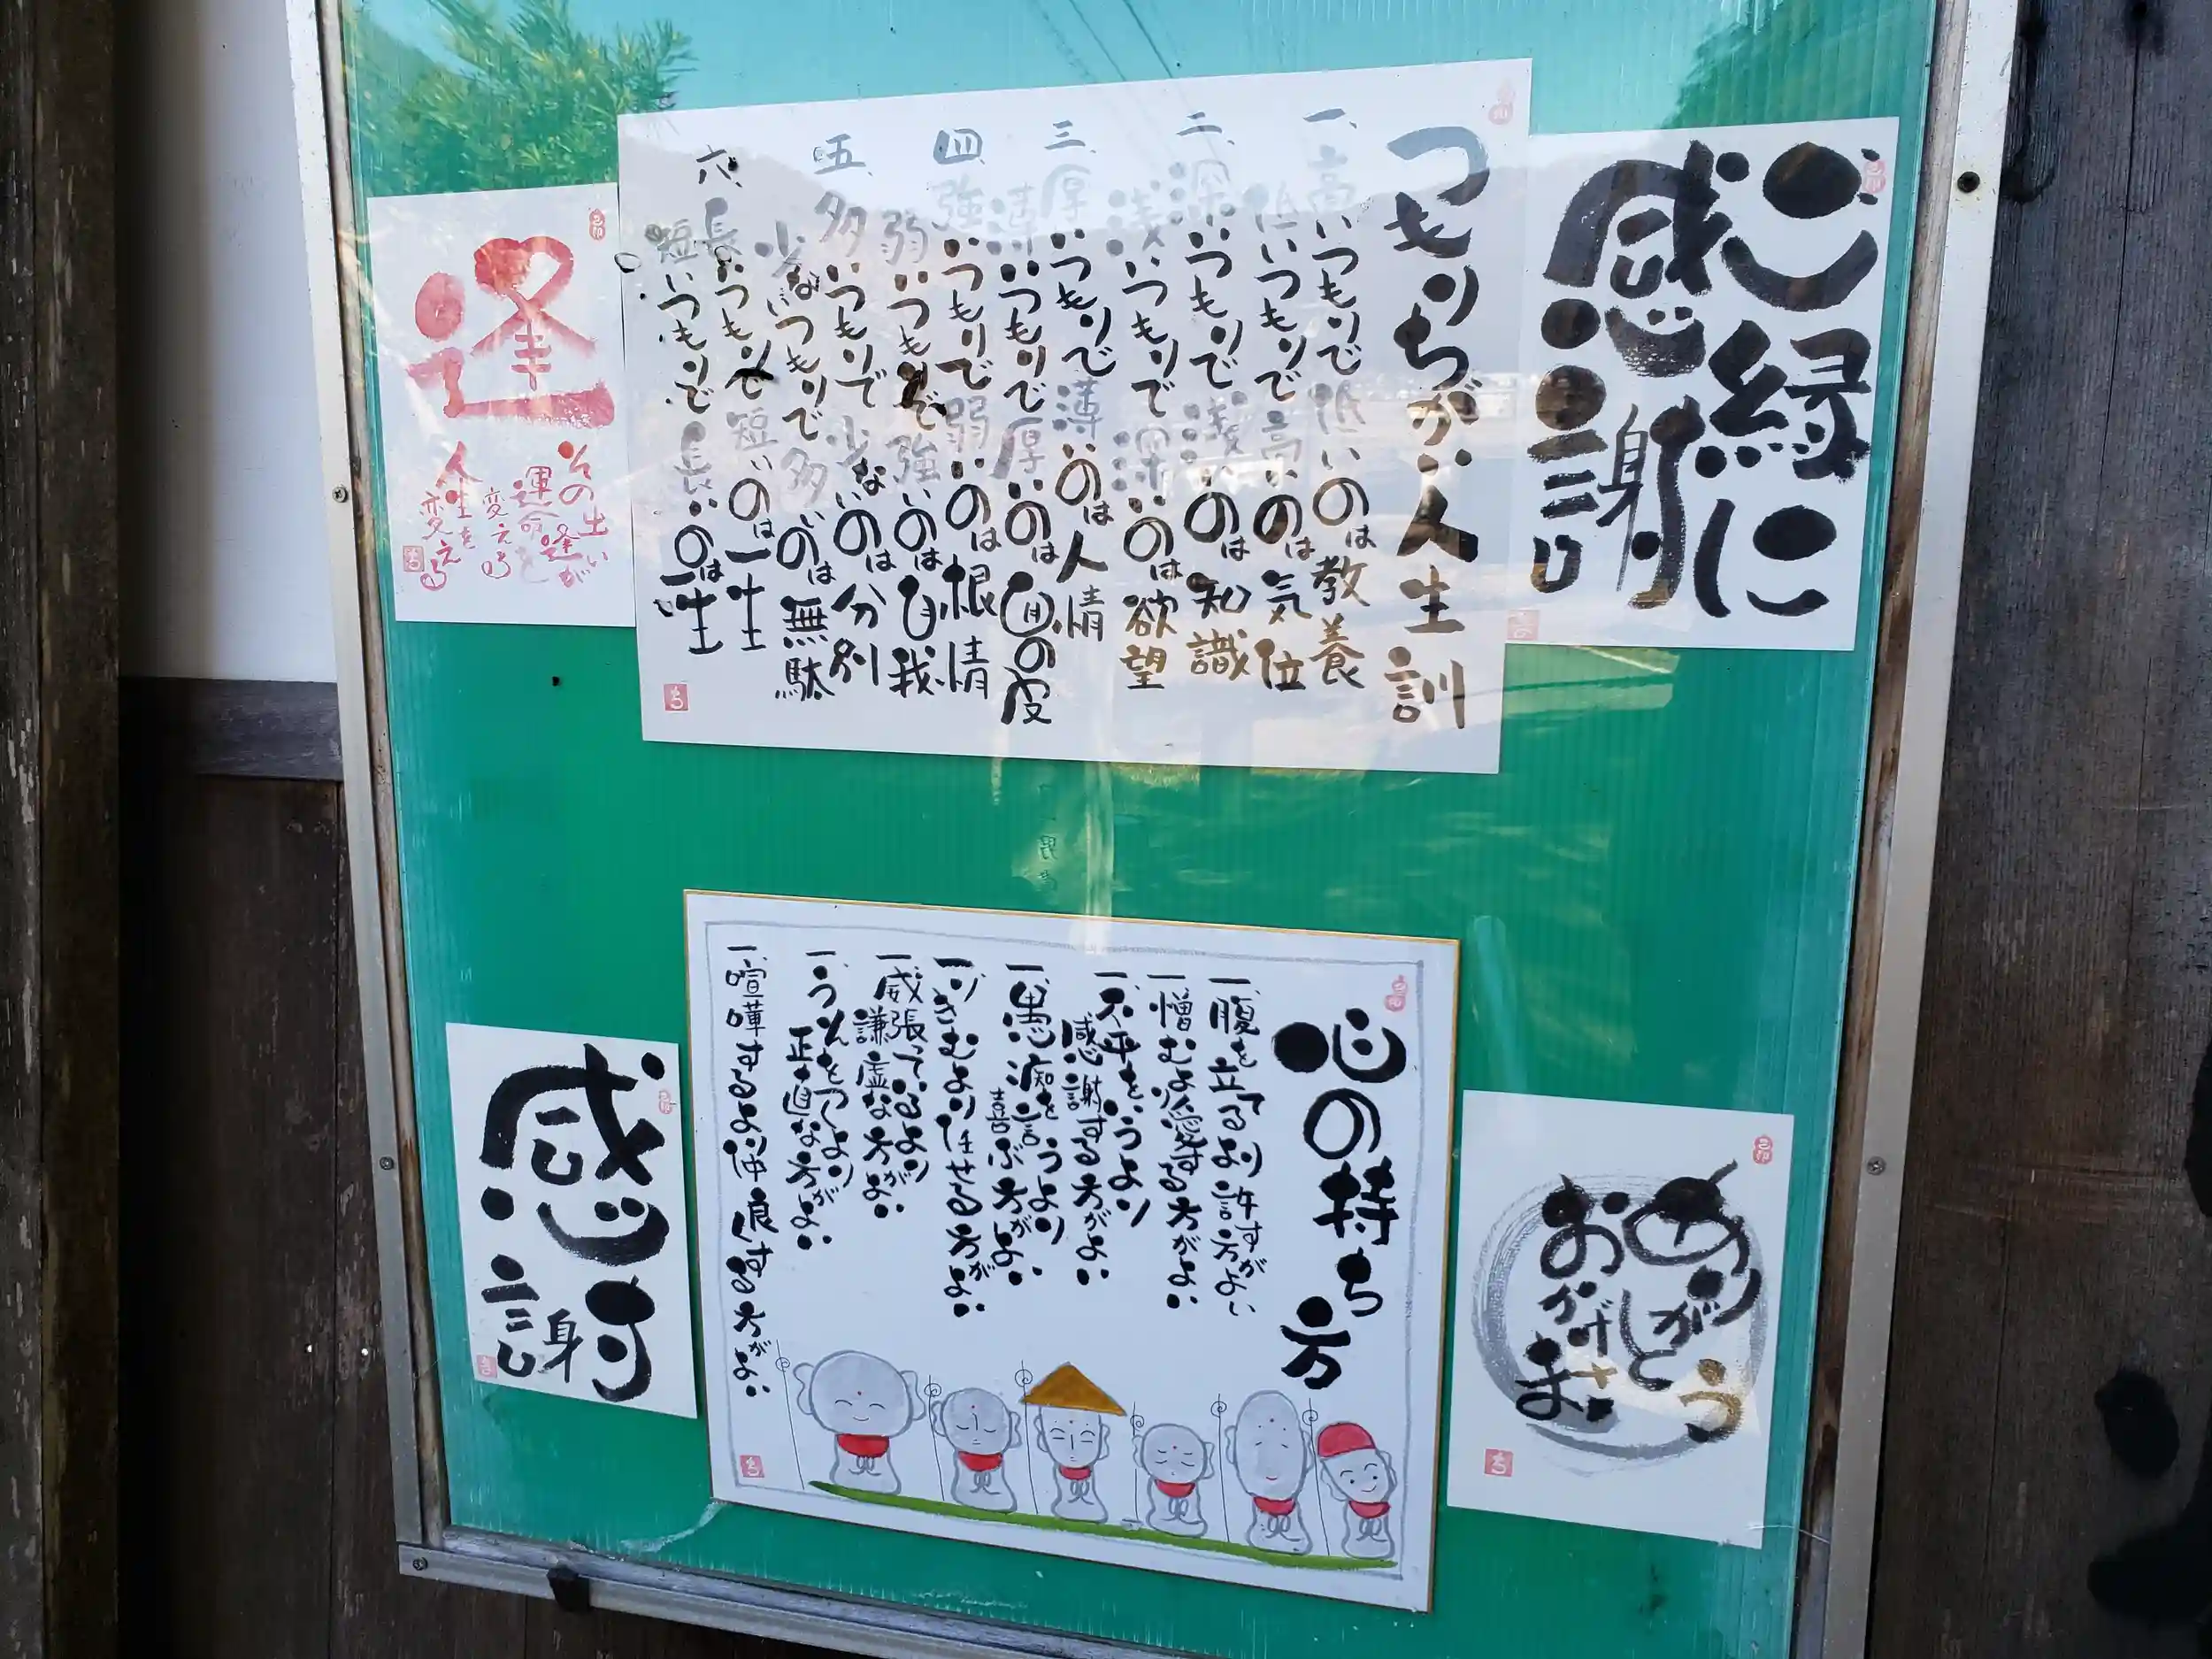 ご縁に
感謝
つもりちがい人生訓
一、高いつもりで低いのは教養
低いつもりで高いのは気位
二、深いつもりで浅いのは知識
浅いつもりで深いのは欲望
三、厚いつもりで薄いのは人情
薄いつもりで厚いのは面の皮
四、強いつもりで弱いのは根情
弱いつもりで強いのは自我
五、多いつもりで少ないのは分別
少ないつもりで多いのは無駄
六、長いつもりで短いのは一生
短いつもりで長いのは一生
逢
その出逢いが
運命を
変える
人生を
変える
心の持ち方
一、腹を立てるより許す方がよい
一、憎むより愛する方がよい
一、不平をいうより
感謝する方がよい
一、愚痴を言うより
喜ぶ方がよい
一、りきむより任せる方がよい
一、威張っているより
謙虚な方がよい
一、うそをつくより
正直な方がよい
一、喧嘩するより仲良くする方がよい
ありがとう
おかげさま
感謝